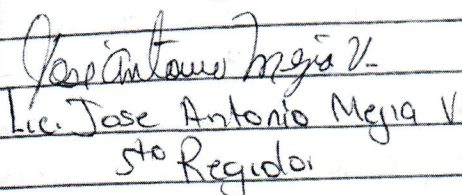 Jose Antonio Mejia V.
Lic. Jose Antonio Mejia V
5to Regidor